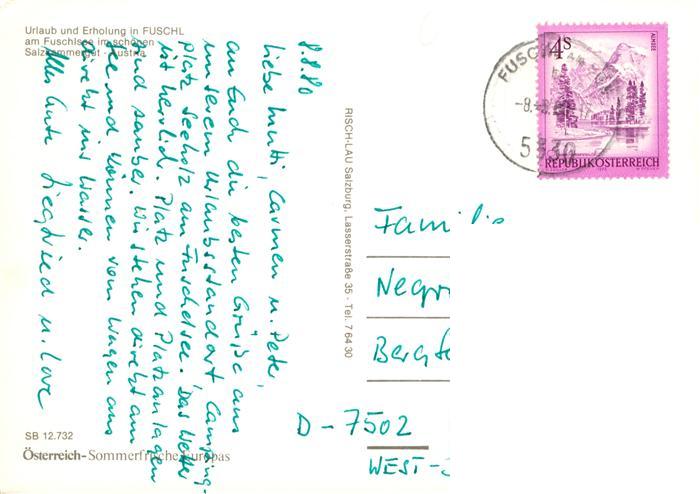 Urlaub und Erholung in FUSCHL
am Fuschlsee im schönen
Salzkammergut - Austria
8.8.80
Liebe Mutti, Carmen u. Peter,
an Euch die besten Grüße aus
unserem Urlaubsstandort, Camping-
platz Seeholz am Fuschelsee. Das Wetter
ist herrlich. Platz und Platzanlagen
sind sauber. Wir stehen direkt am
See und können vom Wagen aus
direkt ins Wasser.
Alles Gute Siegfried u. Love
SB 12.732
Österreich-Sommerfrische Europas
RISCH-LAU Salzburg, Lasserstraße 35 - Tel. 7 64 30
4S
ALMSEE
REPUBLIK ÖSTERREICH
FUSCHL AM SEE
-8.
5330
Famil
Negr
Bergf
D-7502
WEST-